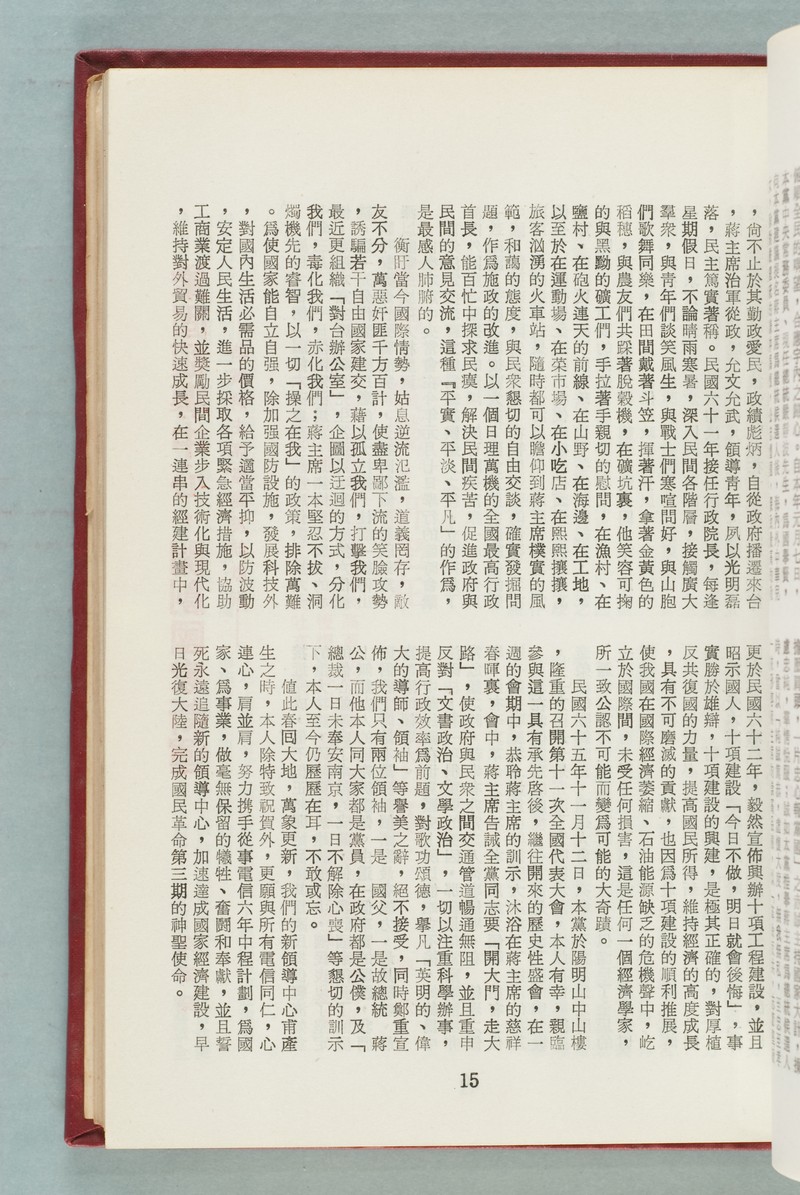 ，尚不止於其勤政愛民，政績彪炳，自從政府播遷來台
，蔣主席治軍從政，允文允武，領導青年，夙以光明磊
落，民主篤實著稱。民國六十一年接任行政院長，每逢
星期假日，不論晴雨寒暑，深入民間各階層，接觸廣大
羣衆，與青年們談笑風生，與戰士們寒喧問好，與山胞
們歌舞同樂，在田間戴著斗笠，揮著汗，拿著金黃色的
稻穗，與農友們共踩著脫穀機，在礦坑裏，他笑容可掬
的與黑黝的礦工們，手拉著手親切的慰問，在漁村、在
鹽村、在砲火連天的前線、在山野、在海邊、在工地，
以至於在運動場、在菜市場、在小吃店、在熙熙攘攘，
旅客汹湧的火車站，隨時都可以瞻仰到蔣主席樸實的風
範，和藹的態度，與民衆懇切的自由交談，確實發掘問
題，作爲施政的改進。以一個日理萬機的全國最高行政
首長，能百忙中探求民瘼，解決民間疾苦，促進政府與
民間的意見交流，這種『平實、平淡、平凡」的作爲，
是最感人肺腑的。
衡盱當今國際情勢，姑息逆流氾濫，道義罔存，敵
友不分，萬惡奸匪千方百計，使盡卑鄙下流的笑臉攻勢
，誘騙若干自由國家建交，藉以孤立我們，打擊我們，
最近更組織「對台辦公室」，企圖以迂迴的方式，分化
我們，毒化我們，赤化我們；蔣主席一本堅忍不拔、洞
燭機先的睿智，以一切「操之在我」的政策，排除萬難
。爲使國家能自立自强，除加强國防設施，發展科技外
，對國內生活必需品的價格，給予適當平抑，以防波動
，安定人民生活，進一步採取各項緊急經濟措施，協助
工商業渡過難關，並獎勵民間企業步入技術化與現代化
，維持對外貿易的快速成長，在一連串的經建計畫中，
更於民國六十二年，毅然宣佈興辦十項工程建設，並且
昭示國人，十項建設「今日不做，明日就會後悔」，事
實勝於雄辯，十項建設的興建，是極其正確的，對厚植
反共復國的力量，提高國民所得，維持經濟的高度成長
，具有不可磨滅的貢獻，也因爲十項建設的順利推展，
使我國在國際經濟萎縮、石油能源缺乏的危機聲中，屹
立於國際間，未受任何損害，這是任何一個經濟學家，
所一致公認不可能而變爲可能的大奇蹟。
民國六十五年十一月十二日，本黨於陽明山中山樓
，隆重的召開第十一次全國代表大會，本人有幸，親臨
參與這一具有承先啓後，繼往開來的歷史性盛會，在一
週的會期中，恭聆蔣主席的訓示，沐浴在蔣主席的慈祥
春暉裏，會中，蔣主席告誡全黨同志要「開大門，走大
路」，使政府與民衆之間交通管道暢通無阻，並且重申
反對「文書政治、文學政治」，一切以注重科學辦事，
提高行政效率爲前題，對歌功頌德，舉凡「英明的、偉
大的導師、領袖」等譽美之辭，絕不接受，同時鄭重宣
佈，我們只有兩位領袖，一是　國父，一是故總統　蔣
公，而他本人同大家都是黨員，在政府都是公僕，及「
總裁一日未奉安南京，一日不解除心喪」等懇切的訓示
下，本人至今仍歷歷在耳，不敢或忘。
値此春回大地，萬象更新，我們的新領導中心甫產
生之時，本人除特致祝賀外，更願與所有電信同仁，心
連心，肩並肩，努力携手從事電信六年中程計劃，爲國
家、爲事業，做毫無保留的犧牲、奮鬪和奉獻，並且誓
死永遠追隨新的領導中心，加速達成國家經濟建設，早
日光復大陸，完成國民革命第三期的神聖使命。
15